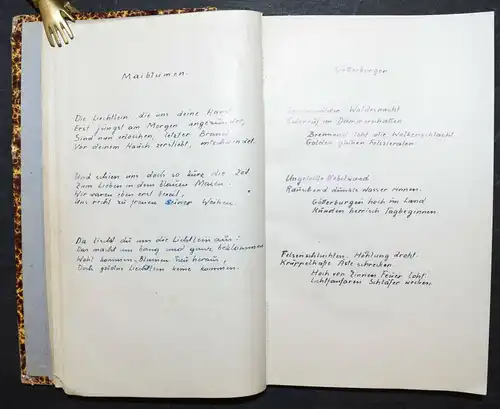 Maiblumen.
Die Lichtlein die uns deine Hand
Erst jüngst am Morgen angezündet,
Sind nun erloschen, letzter Brand
Vor deinem Hauch zerstiebt, entschwindet.
Uns schien uns doch so kurz die Zeit
Zum Lieben in dem blauen Maien.
Wir waren eben erst bereit,
Uns recht zu freuen seiner Weihen.
Da lischt du uns die Lichtlein aus!
Das macht uns bang und ganz beklommen
Wohl kommen Blumen neu heraus,
Doch goldne Lichtlein keine kommen.
Götterburgen
Waldesnacht
Dämmerhallen
Brennend loht die Wolkenschlacht
Golden glühen Felskorallen.
Ungeheure Nebelwand
Rauschend dunkle Wasser rinnen.
Götterburgen hoch im Land
Künden herrisch Tagbeginnen.
Felsenschluchten. Höhlung droht.
Krüppelhafte Äste schrecken
Hoch von Zinnen Feuer loht
Lichtfanfaren Schläfer wecken.